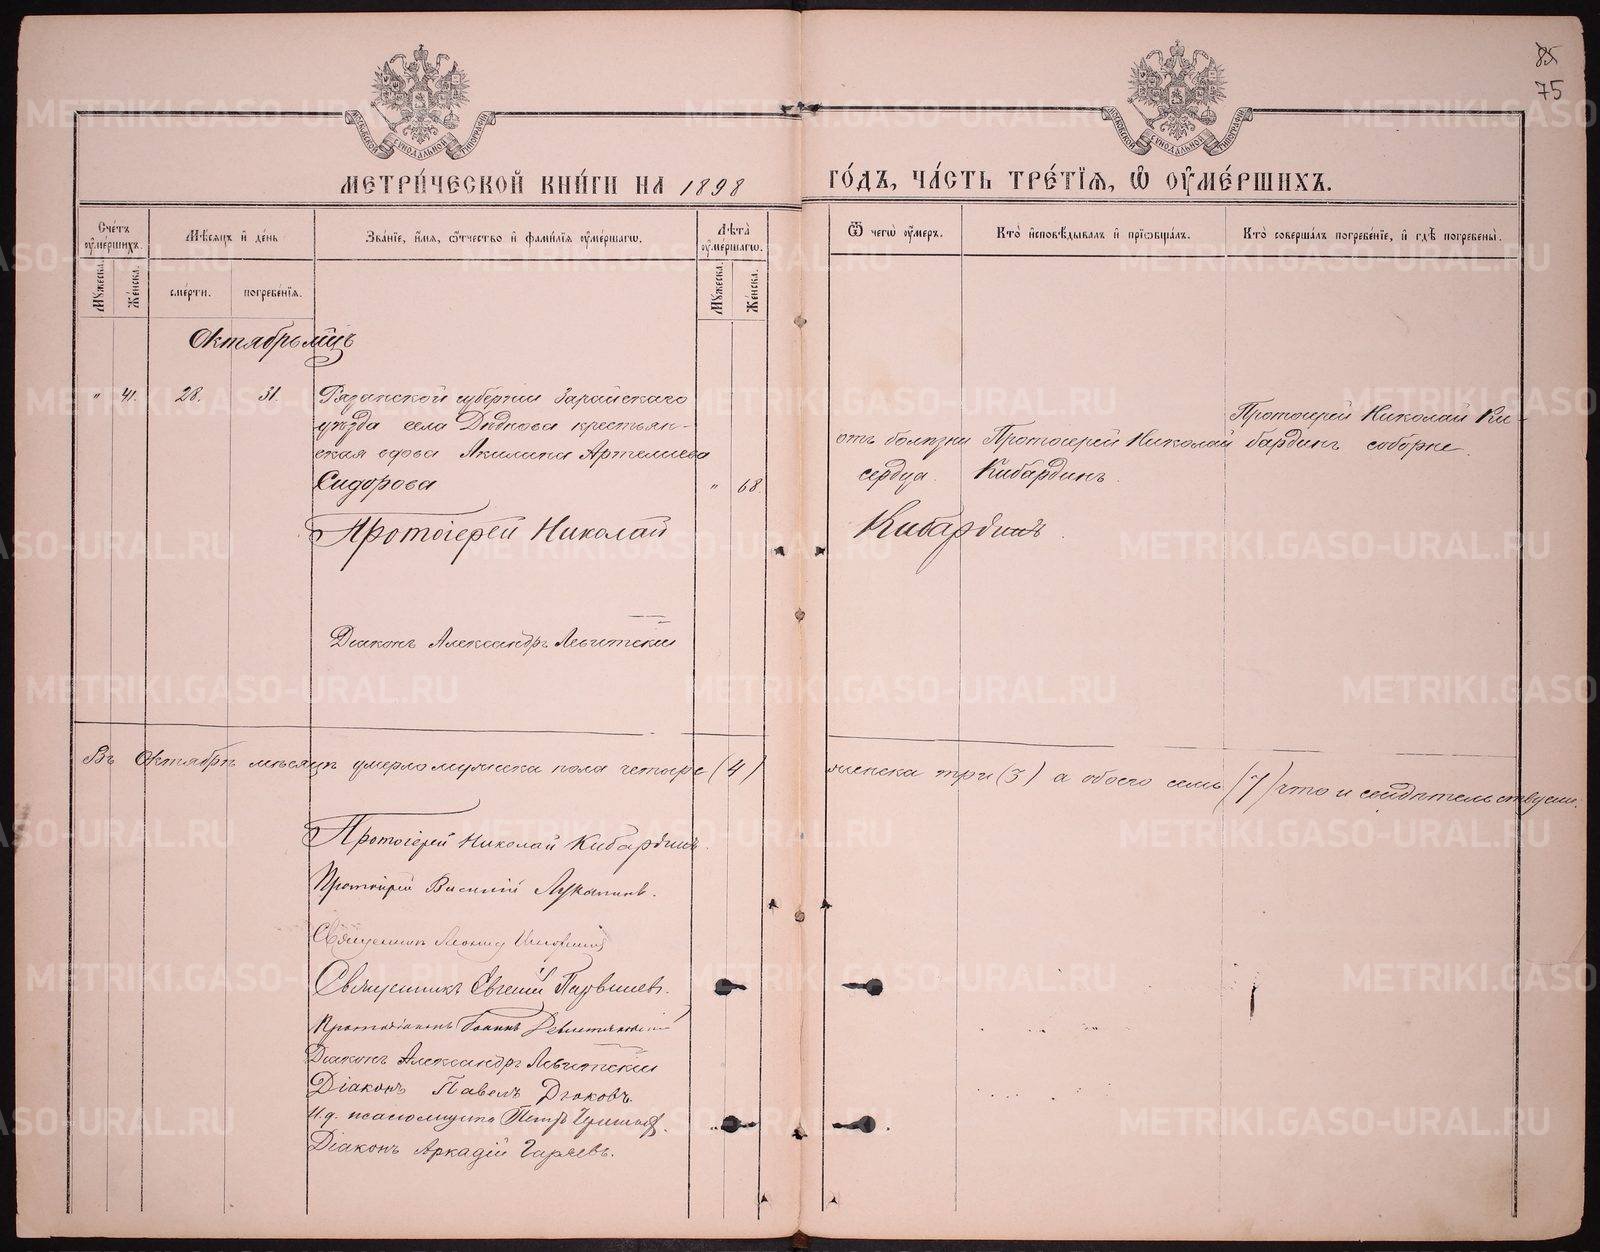 85
75
МОСКОВСКОЙ СѴНОДАЛЬНОЙ ТИПОГРАФІИ
МОСКОВСКОЙ СѴНОДАЛЬНОЙ ТИПОГРАФІИ
МЕТРИ́ЧЕСКОЙ КНИ́ГИ НА 1898 ГО́ДЪ, ЧА́СТЬ ТРЕ́ТІѦ, Ѡ ОУ҆МЕ́РШИХЪ.
Сче́тъ оу҆ме́ршихъ.
Мꙋ́жеска.
Же́нска.
Мѣ́сѧцъ и҆ де́нь
сме́рти.
погребе́нїѧ.
Зва́нїе, и҆́мѧ, ѻ҆́тчество и҆ фами́лїѧ оу҆ме́ршагѡ.
Лѣ́та оу҆ме́ршагѡ.
Мꙋ́жеска.
Же́нска.
Ѿ чегѡ̀ оу҆́меръ.
Кто̀ и҆сповѣ́дывалъ и҆ прїѡбща́лъ.
Кто̀ соверша́лъ погребе́нїе, и҆ гдѣ̀ погребены̀.
Октябрь мцъ
" 41. 28. 31. Рязанской губерніи Зарайскаго
уѣзда села Дѣднова крестьян-
ская вдова Акилина Артемиева
Сидорова " 68.
отъ болѣзни
сердца.
Протоіерей Николай
Кибардинъ.
Протоіерей Николай Ки-
бардинъ соборне.
Протоіерей Николай Кибардинъ.
Діаконъ Александръ Левитскій
Въ Октябрѣ мѣсяцѣ умерло мужеска пола четыре (4) женска три (3) а обоего семь (7) что и свидѣтельствуемъ:
Протоіерей Николай Кибардинъ.
Протоіерей Василій Луканинъ.
Священникъ Леонид
Священникъ Евгеній
Протодіаконъ Іоаннъ
Діаконъ Александръ Левитскій
Діаконъ Павелъ Дьяковъ.
И.д. псаломщика Петръ
Діаконъ Аркадій Гаряевъ.
METRIKI.GASO-URAL.RU